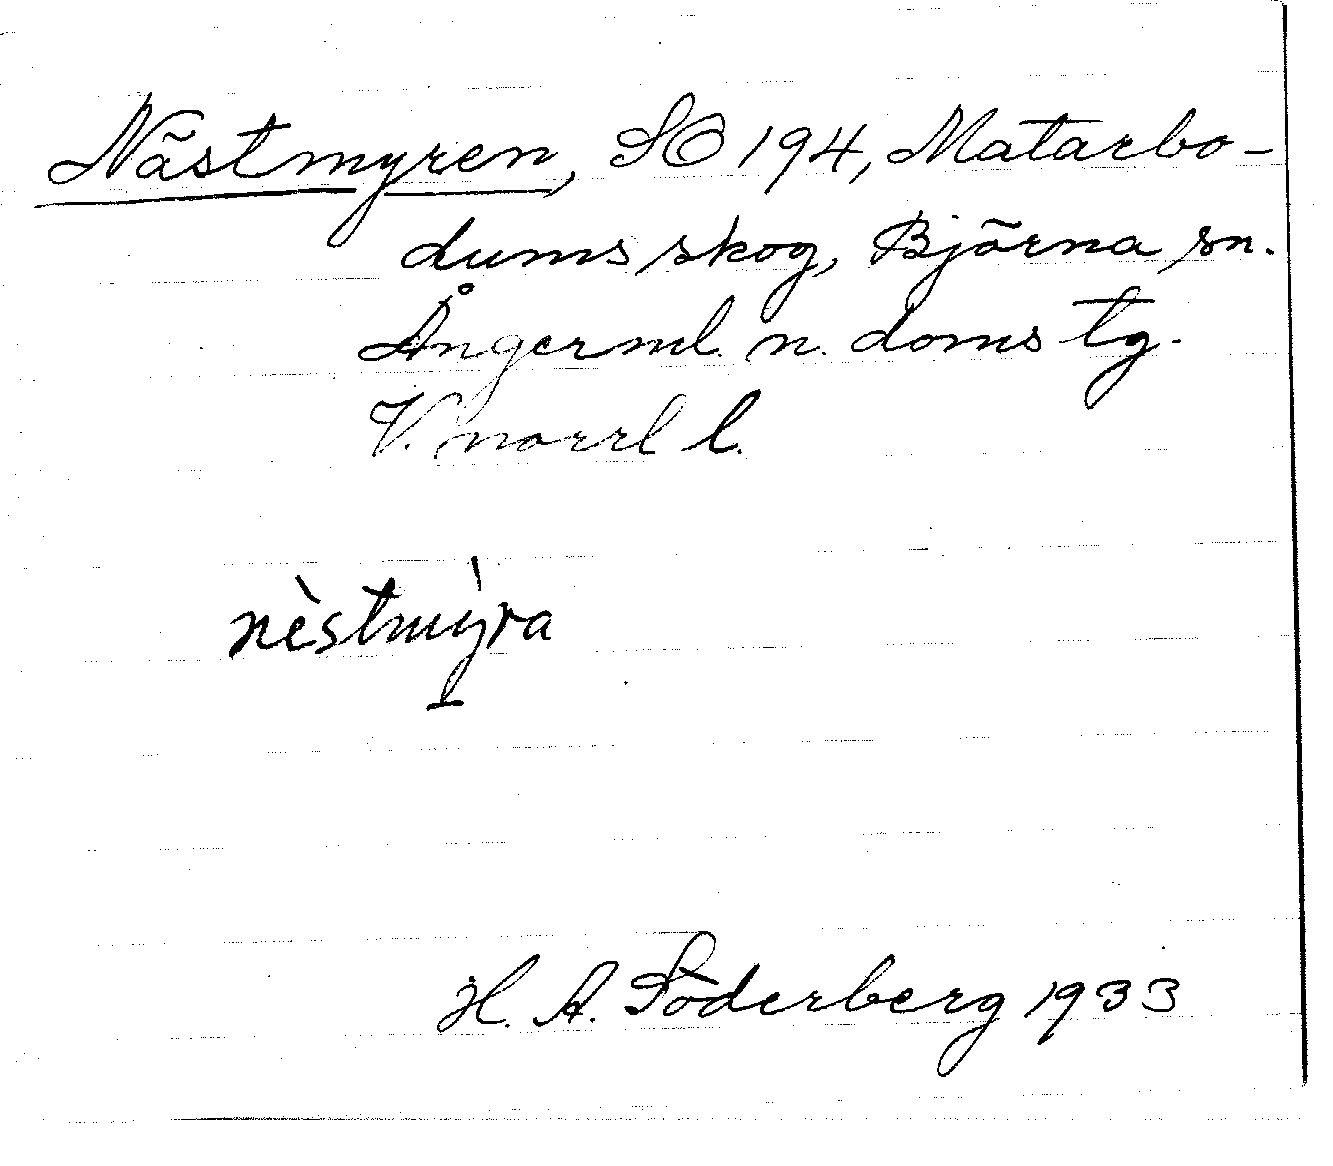 Nästmyren, SO 194, Matarbo-
dums skog, Björna sn.
Ångerml. n. doms tg.
V. norrl l.
nèstmỳra
H. A. Söderberg 1933